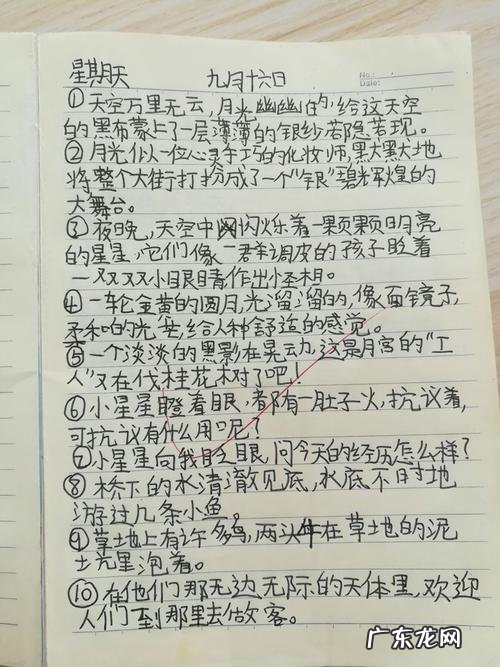 星期天 九月十六日
No.:
Date:
①天空万里无云,月光幽幽的,给这天空
的黑布蒙上了一层薄薄的银纱若隐若现。
②月光似一位心灵手巧的化妆师,默默地
将整个大街打扮成了一个"银"碧辉煌的
大舞台。
③夜晚,天空中闪烁着一颗颗明亮
的星星,它们像一群调皮的孩子眨着
一双双小眼睛作出怪相。
④一轮金黄的圆月,光溜溜的,像面镜子,
柔和的光芒给人种舒适的感觉。
⑤一个淡淡的黑影在晃动,这是月宫的"工
人"又在伐桂花树了吧!
⑥小星星瞪着眼,都有一肚子火,抗议着,
可抗议有什么用呢?
⑦小星星向我眨眼,问今天的经历怎么样?
⑧桥下的水清澈见底,水底不时地
游过几条小鱼。
⑨草地上有许多鸟,两头牛在草地的泥
坑里泡着。
⑩在他们那无边无际的天体里,欢迎
人们到那里去做客。
广东龙网